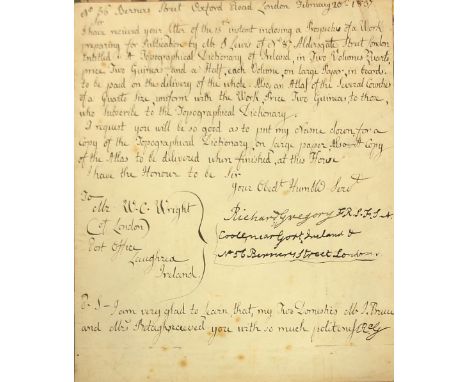 No 56 Berners Street Oxford Road London February 20th 1837
Sir
I have received your Letter of the 15th instant inclosing a Prospectus of a Work
preparing for Publication by Mr S Lewis of No 87 Aldersgate Street London
Entitled A Topographical Dictionary of Ireland, in Two Volumes Quarto,
price Two Guineas and a Half, each Volume, on large Paper, in boards,
to be paid on the delivery of the whole. Also an Atlas of the Several Counties
of a Quarto size uniform with the Work, Price Two Guineas to those,
who subscribe to the Topographical Dictionary.
I request you will be so good as to put my Name down for a
Copy of the Topographical Dictionary, on large paper Also a Copy
of the Atlas to be delivered when finished, at this House
I have the Honour to be Sir
Your Obedt Humble Servt
Richard Gregory F.R.S. F.S.A
Coole near Gort, Ireland &
No 56 Berners Street London.
To
Mr W. C. Wright
(of London)
Post Office
Laughrea
Ireland.
P.S - I am very glad to learn that, my Two Domestics Mr J. Bruce
and Mrs received you with so much politeness RG